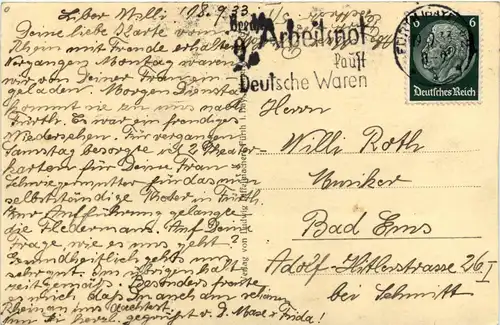 Lieber Willi! 108.9.33.
Deine liebe Karte vom
Rhein mit Freude erhalten.
Vergangen Montag waren
wir von Deiner Frau ein-
geladen. Morgen Dienstag
kommt sie zu uns nach
Fürth. Es war ein freudiges
Wiedersehen. Für vergangen
Samstag besorgte ich 2 Theater-
karten für Deine Frau u.
Schwiegermutter für das nun
selbstständige Theater in Fürth.
Zur Aufführung gelangte
die Fledermaus. Auf Deine
Frage, wie es uns geht?
Gesundheitlich geht's uns
sehr gut. Im übrigen halt
zeitgemäß. Besonders freute
es mich, daß Du auch am schönen
Rhein an uns dachtest.
herzl. gegrüßt v. D. Max u. Frida!
Verlag von Ludwig Riffelmacher, Fürth i. Bay.
Arbeitsnot
kauft
Deutsche Waren
6 6
Deutsches Reich
Herrn
Willi Roth
Musiker
Bad Ems
Adolf-Hitlerstrasse 26 I
bei Schmitt